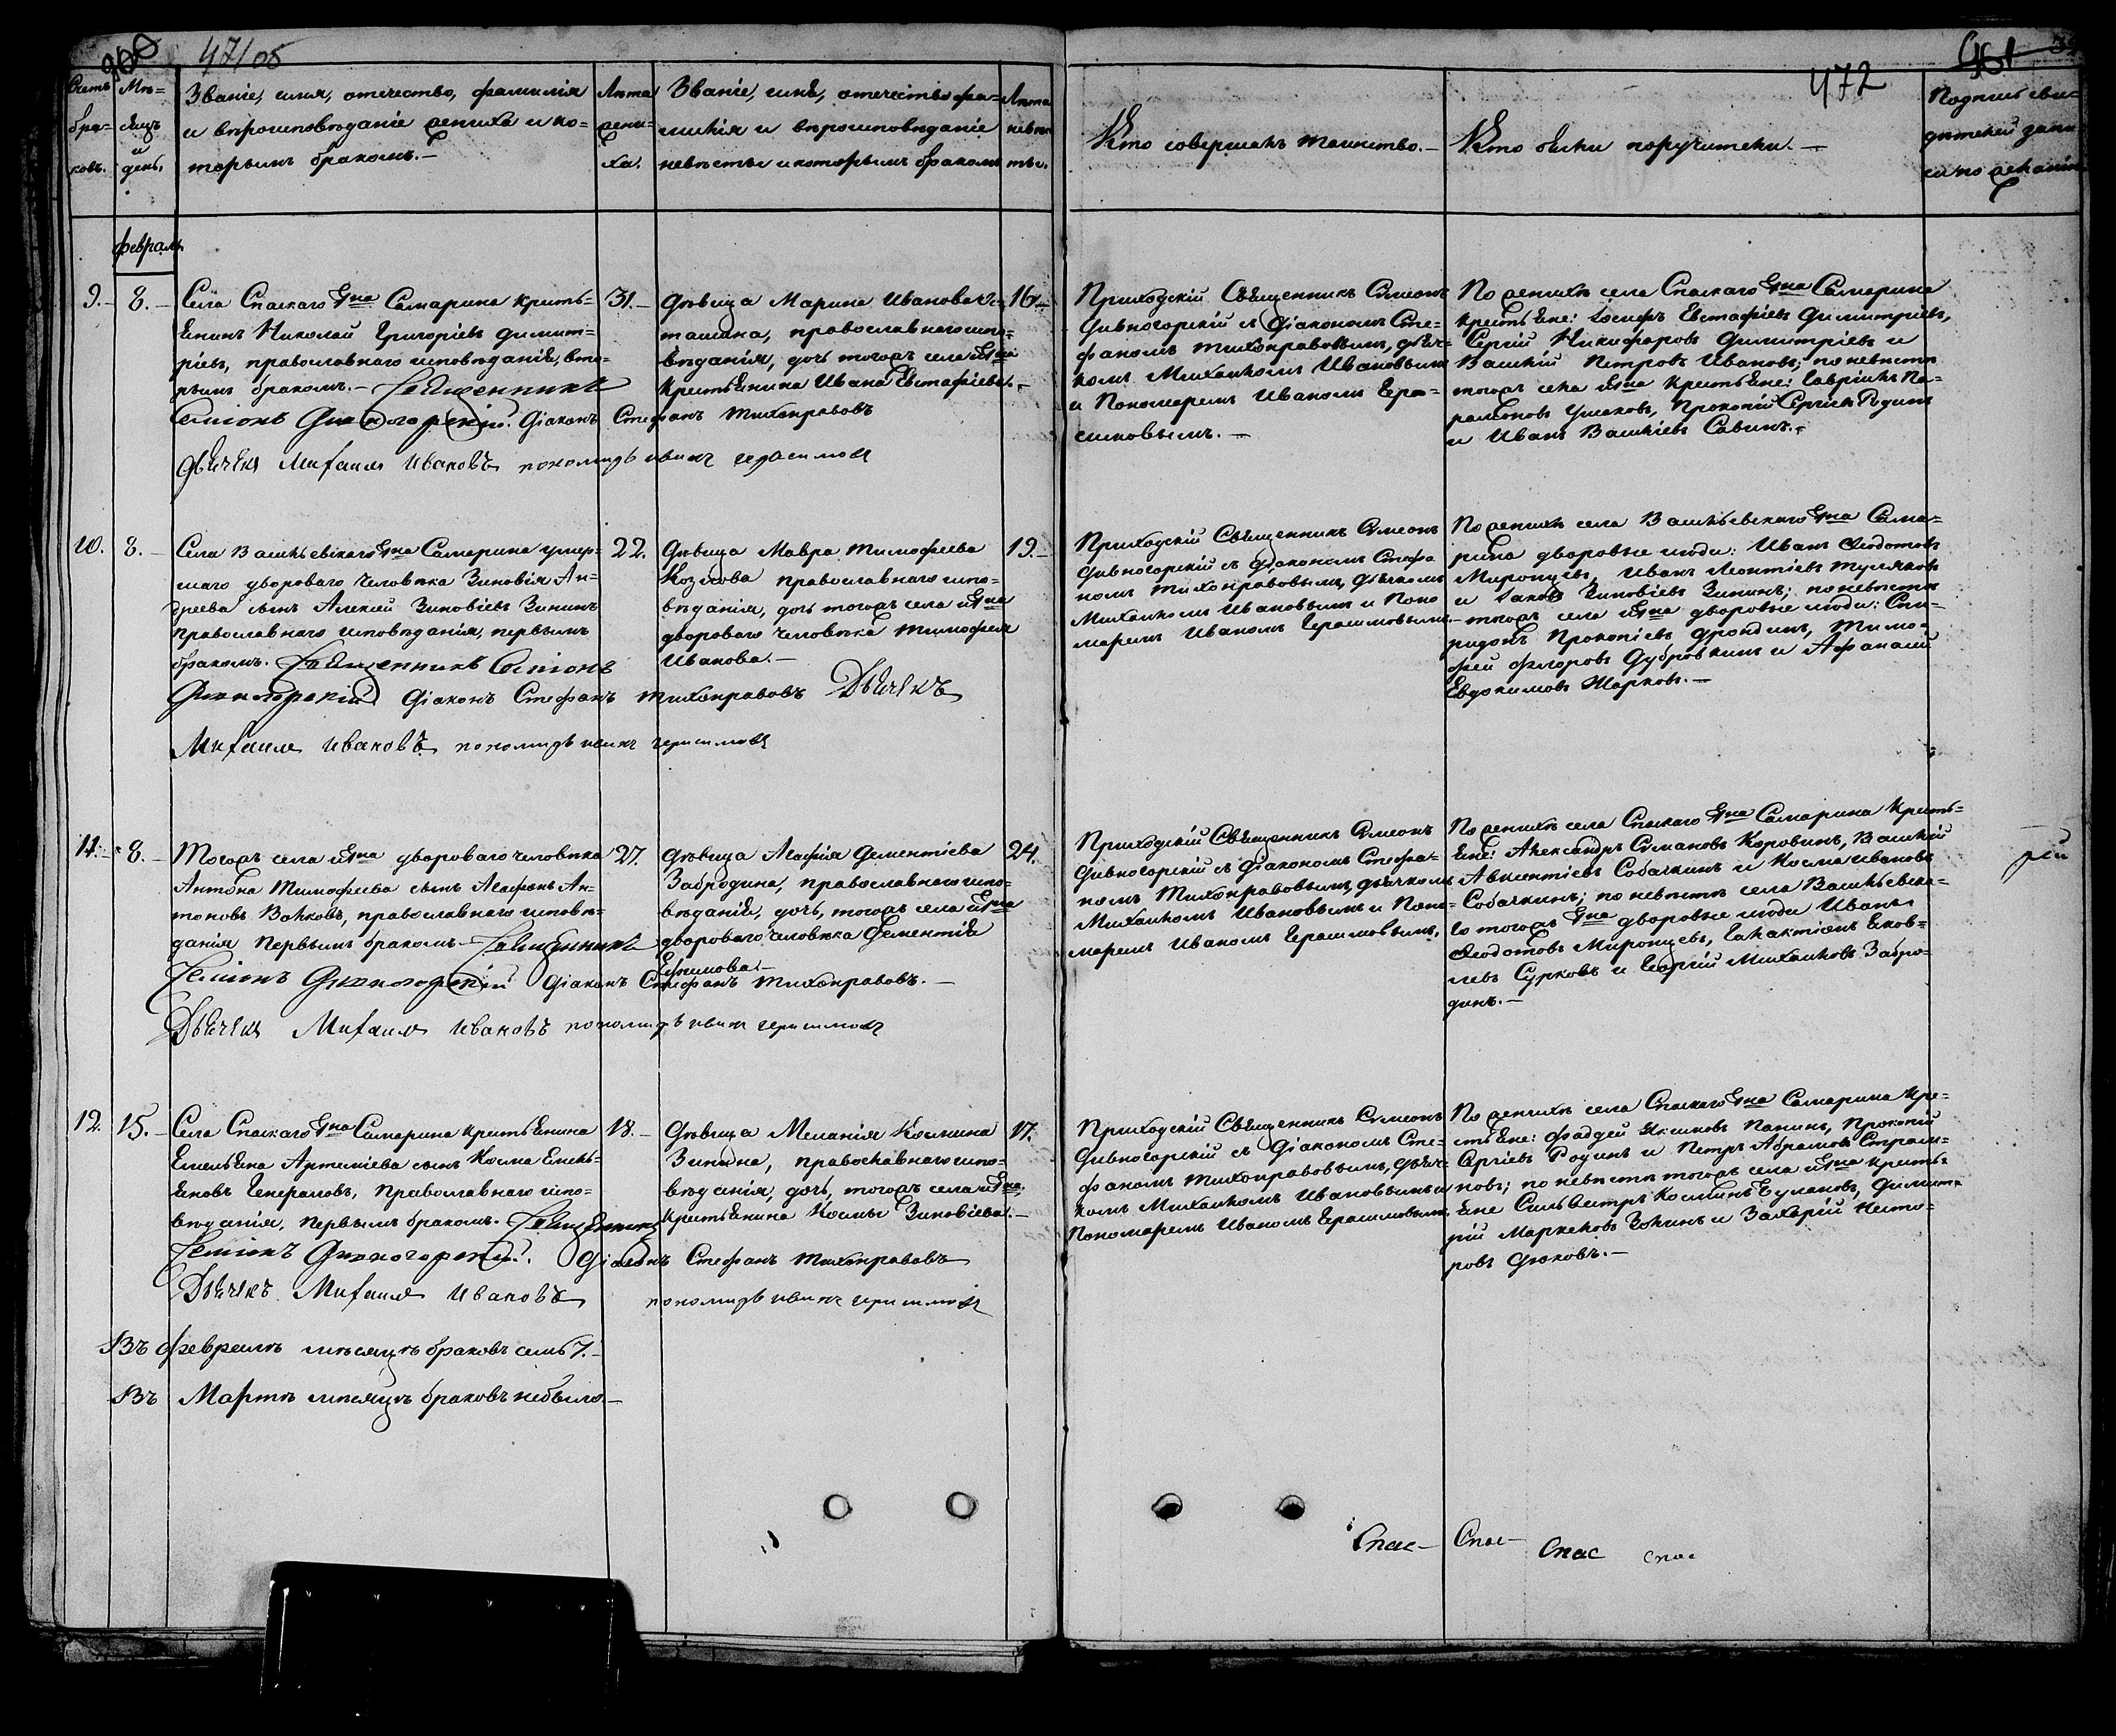 960 47/об
472
961
Счетъ бра-ковъ.
Мѣ-сяцъ и день.
Званіе, имя, отечество, фамилія
и вѣроисповѣданіе жениха и ко-
торымъ бракомъ.—
Лѣта жени-ха.
Званіе, имя, отечество фа-
милія и вѣроисповѣданіе
невѣсты и которымъ бракомъ
Лѣта невѣс-ты.
Кто совершалъ таинство.—
Кто были поручители.—
Подпись сви-
дѣтелей запи-
си по желанію
февраль
9.— 8.—
Села Спаскаго Гна Самарина кресть-
янинъ Николай Григоріевъ Димит-
ріевъ, православнаго исповѣданія, вто-
рымъ бракомъ.— Священникъ
Симеонъ Дивногорскій. Діаконъ Стефанъ Тихонравовъ
Дьячекъ Михаилъ Ивановъ пономаръ иванъ герасимовъ
31.—
Дѣвица Марина Иванова
православнаго испо-
вѣданія, дочь тогожъ села и Гна
крестьянина Ивана Евстафіева.—
16.—
Приходскій Священникъ Симеонъ
Дивногорскій съ Діакономъ Сте-
фаномъ Тихонравовымъ, дьяч-
комъ Михаиломъ Ивановымъ
и Пономаремъ Иваномъ Гера-
симовымъ.—
По женихѣ села Спаскаго Гна Самарина
крестьяне: Іосифъ Евстафіевъ Димитріевъ,
Сергій Никифоровъ Димитріевъ и
Василій Петровъ Ивановъ; по невѣстѣ
тогожъ села и Гна крестьяне: Гавріилъ Па-
рамоновъ Ушаковъ, Прокопій Сергіевъ Родинъ
и Иванъ Васильевъ Савинъ.—
10. 8.—
Села Васильевскаго Гна Самарина умер-
шаго дворового человѣка Зиновія Ан-
дреева сынъ Алексій Зиновіевъ Зининъ
православнаго исповѣданія, первымъ
бракомъ. Священникъ Симеонъ
Дивногорскій Діаконъ Стефанъ Тихонравовъ Дьячекъ
Михаилъ Ивановъ пономаръ иванъ герасимовъ
22.
Дѣвица Мавра Тимофеева
Козлова православнаго испо-
вѣданія, дочь тогожъ села и Гна
дворового человѣка Тимофея
Иванова.—
19.—
Приходскій Священникъ Симеонъ
Дивногорскій съ діакономъ Стефа
номъ Тихонравовымъ, дьячкомъ
Михаиломъ Ивановымъ и Поно
маремъ Иваномъ Герасимовымъ.—
По женихѣ села Васильевскаго Гна Сама-
рина дворовые люди: Иванъ Ѳеодотовъ
Миронцевъ, Иванъ Леонтіевъ Туляковъ
и Іаковъ Зиновіевъ Зининъ; по невѣстѣ
тогожъ села и Гна дворовые люди: Спи-
ридонъ Прокопіевъ Дрондинъ, Тимо-
фей Федоровъ Дубровкинъ и Афанасій
Евдокимовъ Жарковъ.—
11.— 8.—
Тогожъ села и Гна дворового человѣка
Антона Тимофеева сынъ Агафонъ Ан-
тоновъ Волковъ, православнаго исповѣ-
данія первымъ бракомъ.— Священникъ
Симеонъ Дивногорскій Діаконъ Стефанъ Тихонравовъ.—
Дьячекъ Михаилъ Ивановъ пономаръ иванъ герасимовъ
27.
Дѣвица Агафія Дементіева
Забродина, православнаго испо-
вѣданія, дочь, тогожъ села и Гна
дворового человѣка Дементія
Ефимова.—
24.
Приходскій Священникъ Симеонъ
Дивногорскій съ діакономъ Стефа-
номъ Тихонравовымъ, дьячкомъ
Михаиломъ Ивановымъ и Поно-
маремъ Иваномъ Герасимовымъ.
По женихѣ села Спаскаго Гна Самарина кресть-
яне: Александръ Симановъ Коровинъ, Василій
Авксентіевъ Собачкинъ и Косма Ивановъ
Собачкинъ; по невѣстѣ села Васильевска-
го тогожъ Гна дворовые люди Иванъ
Ѳеодотовъ Миронцевъ, Галактіонъ Яков-
левъ Сурковъ и Георгій Михаиловъ Забро-
динъ.—
рій
12. 15.—
Села Спаскаго Гна Самарина крестьянина
Емельяна Артеміева сынъ Косма Емель-
яновъ Генераловъ, православнаго испо-
вѣданія, первымъ бракомъ. Священникъ
Симеонъ Дивногорскій. Діаконъ Стефанъ Тихонравовъ
Дьячекъ Михаилъ Ивановъ пономаръ иванъ герасимовъ
18.—
Дѣвица Меланія Космина
Зинина, православнаго испо-
вѣданія, дочь, тогожъ села и Гна
крестьянина Космы Зиновіева.—
17.
Приходскій Священникъ Симеонъ
Дивногорскій съ Діакономъ Сте-
фаномъ Тихонравовымъ, дьяч-
комъ Михаиломъ Ивановымъ и
Пономаремъ Иваномъ Герасимовымъ.
По женихѣ села Спаскаго Гна Самарина кре-
стьяне: Фаддей Панинъ, Прокопій
Сергіевъ Родинъ и Петръ Абрамовъ
новъ; по невѣстѣ тогожъ села и Гна кресть-
яне Сильвестръ Косминъ Булановъ, Димит-
рій Маркеловъ Зонинъ и Захарій Несто-
ровъ Дюковъ.—
Въ февралѣ мѣсяцѣ браковъ семь 7.—
Въ Мартѣ мѣсяцѣ браковъ небыло.—
Спас— Спас— Спас Спас